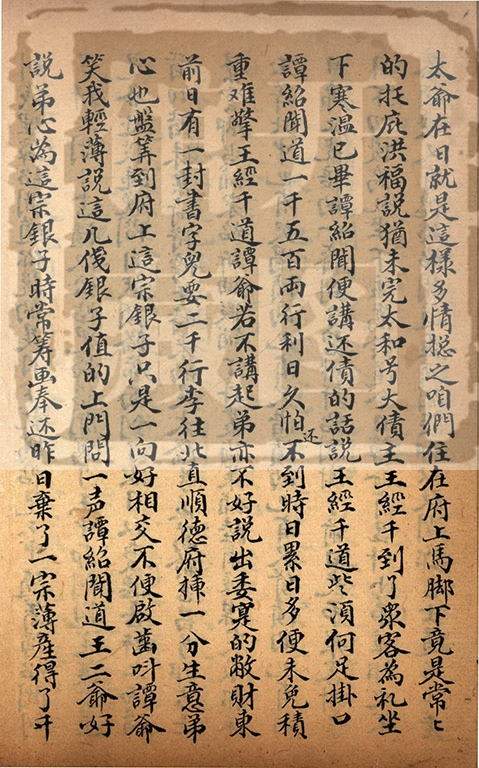 太爺在日就是這樣多情捴之咱們住在府上馬脚下竟是常〻
的托庇洪福說猶未完太和号大債主王經千到了眾客為礼坐
下寒温已畢譚紹聞便講还債的話說王經千道些湏何足掛口
譚紹聞道一千五百両行利日久怕还不到時日累日多便未免積
重难擎王經千道譚爺若不講起弟亦不好說出委寔的敝財東
前日有一封書字兒要二千行李往北直順德府揷一分生意弟
心也盤筭到府上這宗銀子只是一向好相交不便啟齒呌譚爺
笑我輕薄說這几伐銀子值的上門問一声譚紹聞道王二爺好
說弟心為這宗銀子時常筹画奉还昨日棄了一宗薄産得了千